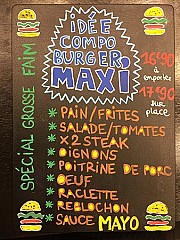 SPÉCIAL GROSSE FAIM
iDÉE
COMPO
BURGER
MAXI
16€90
à
emporter
17€90
sur
place
* PAIN/FRITES
* SALADE/TOMATES
* x2 STEAK
* OIGNONS
* POITRINE DE PORC
* OEUF
* RACLETTE
* REBLOCHON
* SAUCE MAYO